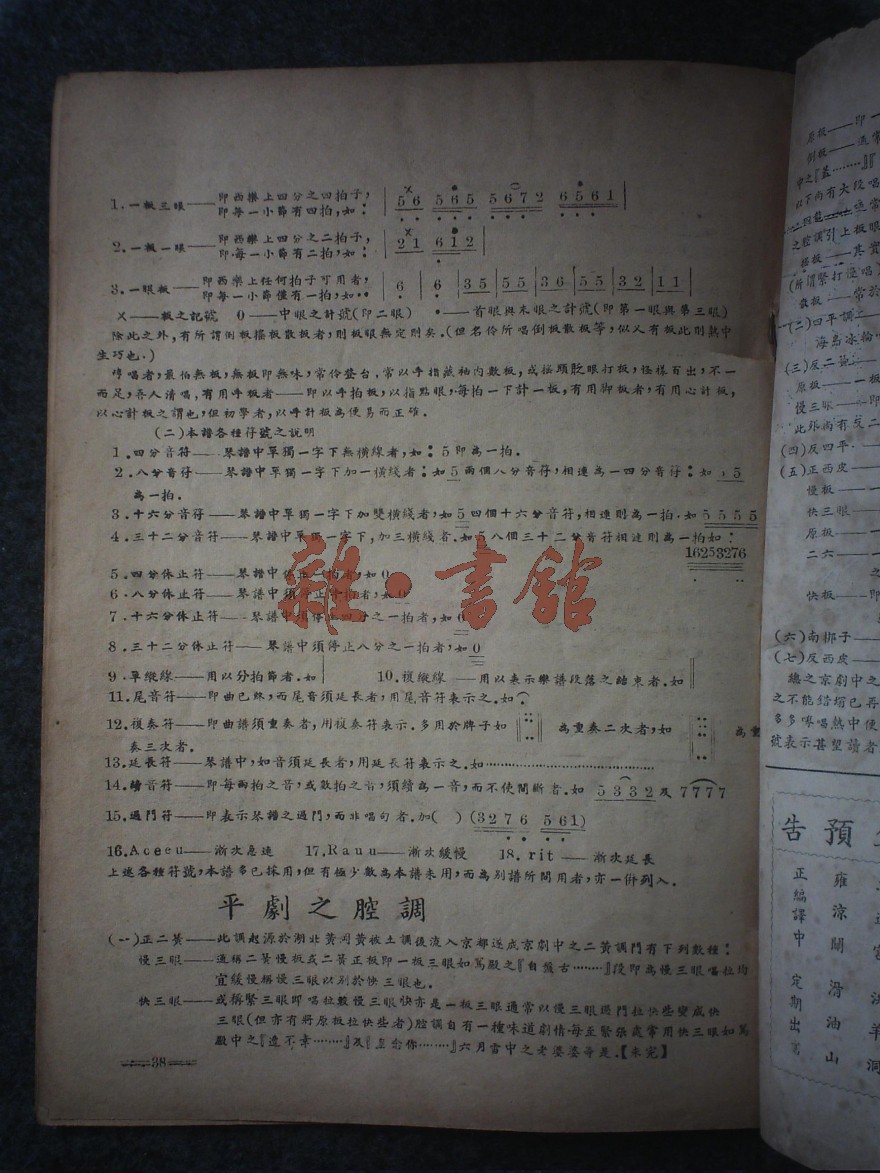 1.一板三眼——即西樂上四分之四拍子，
即每一小節有四拍，如：
5 6 5 6 5 5 6 7 2 6 5 6 1
2.一板一眼——即西樂上四分之二拍子，
即每一小節有二拍，如：
2 1 6 1 2
3.一眼板——即西樂上任何拍子可用者，
即每一小節僅有一拍，如：
6 | 6 | 3 5 | 5 5 | 3 6 | 5 5 | 3 2 | 1 1
×——板之記號 0——中眼之計號(即二眼) •——首眼與末眼之計號(即第一眼與第三眼)
除此之外，有所謂倒板搖板散板者，則板眼無定則矣。(但名伶所唱倒板散板等，似乂有板此則熱中
生巧也。)
唱者，最怕無板，無板即無味，常伶登台，常以手指藏袖内數板，或搖頭眨眼打板，怪樣百出，不一
而足，吾人清唱，有用手板者——即以手拍板，以指點眼，每拍一下計一板，有用脚板者，有用心計板，
以心計板之謂也，但初學者，以手計板為便易而正確。
(二)本譜各種符號之説明
1.四分音符——琴譜中單獨一字下無橫線者，如：5即為一拍。
2.八分音符——琴譜中單獨一字下加一橫綫者：如5兩個八分音符，相連為一四分音符：如 5
為一拍。
3.十六分音符——琴譜中單獨一字下加雙橫綫者，如5四個十六分音符，相連則為一拍.如5 5 5 5
4.三十二分音符——琴譜中單獨一字下，加三橫綫者.如5八個三十二分音符相連則為一拍如：
16253276
5.四分休止符——琴譜中休止一拍者，如0
6.八分休止符——琴譜中須停止半拍者，如0
7.十六分休止符——琴譜中須停止四分之一拍者，如0
8.三十二分休止符——琴譜中須停止八分之一拍者，如0
9.單縱線——用以分拍節者.如| 10.複縱線——用以表示樂譜段落之結束者.如‖
11.尾音符——即曲已終，而尾音須延長者，用尾音符表示之.如
12.複奏符——即曲譜須重奏者，用複奏符表示.多用於牌子如 為重奏二次者，如 為重
奏三次者.
13.延長符——琴譜中，如音須延長者，用延長符表示之.如…………
14.續音符——即每兩拍之音，或數拍之音，須續為一音，而不使間斷者.如 5 3 3 2 及 7 7 7 7
15.過門符——即表示琴譜之過門，而非唱句者.加( ) (3 2 7 6 5 6 1)
16.Acecu——漸次急速 17.Rauu——漸次緩慢 18.rit——漸次延長
上述各種符號，本譜多已採用，但有極少數為本譜未用，而為別譜所間用者，亦一併列入.
平劇之腔調
(一)正二簧——此調起源於湖北黃岡黃陂土調後流入京都遂成京劇中之二黃調門有下列數種：
慢三眼——通稱二黃慢板或二黃正板即一板三眼如罵殿之『自盤古………』段即為慢三眼唱拉均
宜緩慢稱慢三眼以別於快三眼也.
快三眼——或稱緊三眼即唱拉較慢三眼快亦是一板三眼通常以慢三眼過門拉快些變成快
三眼(但亦有將原板拉快些者)腔調自有一種味道劇情每至緊張處常用快三眼如罵
殿中之『遭不幸………』及『 念你………』六月雪中之老婆婆等是.【未完】
38
原板——即一
倒板——通常
中之『盖………』『
以下尚有大段唱
之腔調引上板眼
搖板——其實
(所謂緊打慢唱)
散板——常於
(二)四平調
海島冰輪
(三)反二簧
原板——一板
慢三眼——即
此外尚有反二
(四)反四平
(五)正西皮
慢板——
快三眼——
原板——
二六——
之
快板——即
(六)南梆子
(七)反西皮
總之京劇中之
之不能錯
多多 唱熱中使
號表示甚望讀者
預告
正編譯中 定期出
雍涼關
滑油山
洞